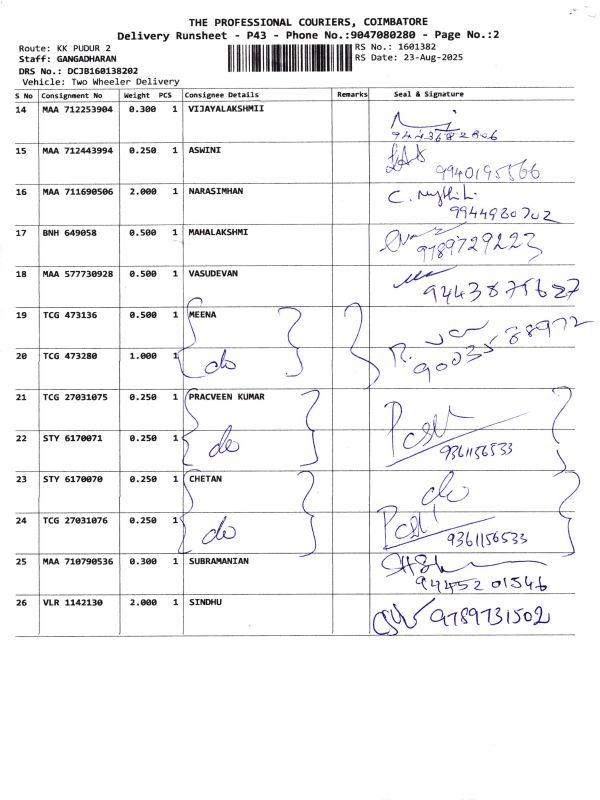 THE PROFESSIONAL COURIERS, COIMBATORE
Delivery Runsheet - P43 - Phone No.:9047080280 - Page No.:2
Route: KK PUDUR 2
RS No.: 1601382
Staff: GANGADHARAN
RS Date: 23-Aug-2025
DRS No.: DCJB160138202
Vehicle: Two Wheeler Delivery
S No Consignment No Weight PCS Consignee Details Remarks Seal & Signature
14 MAA 712253904 0.300 1 VIJAYALAKSHMII
9443682806
15 MAA 712443994 0.250 1 ASWINI
9940195566
16 MAA 711690506 2.000 1 NARASIMHAN
9944930702
17 BNH 649058 0.500 1 MAHALAKSHMI
9789729223
18 MAA 577730928 0.500 1 VASUDEVAN
9443875627
19 TCG 473136 0.500 1 MEENA
20 TCG 473280 1.000 1 do
21 TCG 27031075 0.250 1 PRACVEEN KUMAR
22 STY 6170071 0.250 1 do
9361156533
23 STY 6170070 0.250 1 CHETAN do
24 TCG 27031076 0.250 1 do
9361156533
25 MAA 710790536 0.300 1 SUBRAMANIAN
9445201546
26 VLR 1142130 2.000 1 SINDHU 9789731502